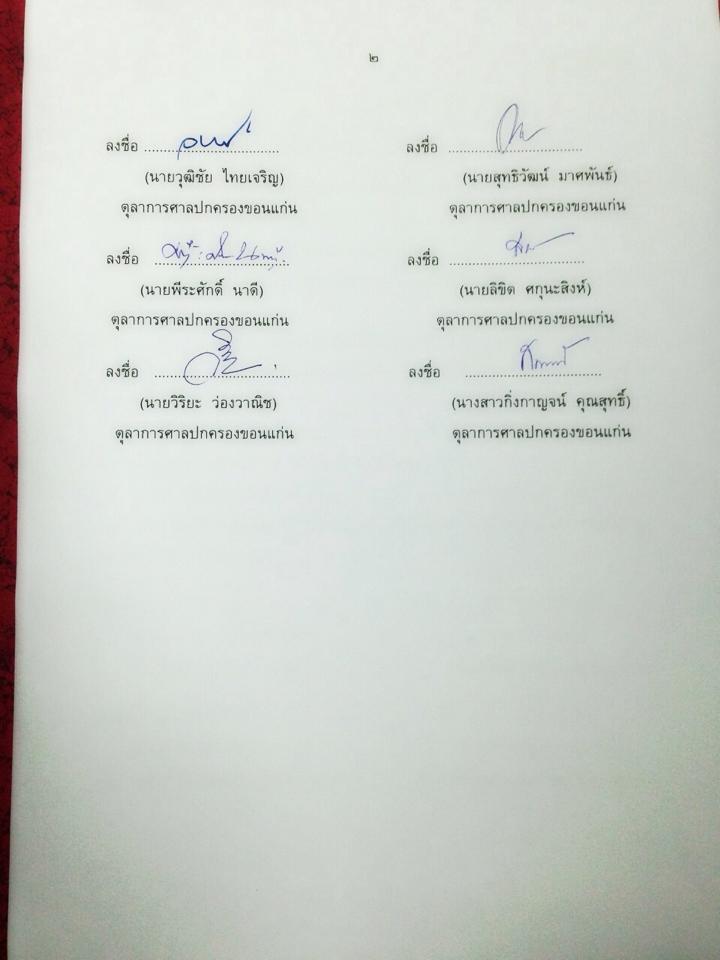 ๒
ลงชื่อ ........................... ลงชื่อ ...........................
(นายวุฒิชัย ไทยเจริญ) (นายสุทธิวัฒน์ มาศพันธ์)
ตุลาการศาลปกครองขอนแก่น ตุลาการศาลปกครองขอนแก่น
ลงชื่อ ........................... ลงชื่อ ...........................
(นายพีระศักดิ์ นาดี) (นายลิขิต ศกุนะสิงห์)
ตุลาการศาลปกครองขอนแก่น ตุลาการศาลปกครองขอนแก่น
ลงชื่อ ........................... ลงชื่อ ...........................
(นายวิริยะ ว่องวาณิช) (นางสาวกิ่งกาญจน์ คุณสุทธิ์)
ตุลาการศาลปกครองขอนแก่น ตุลาการศาลปกครองขอนแก่น